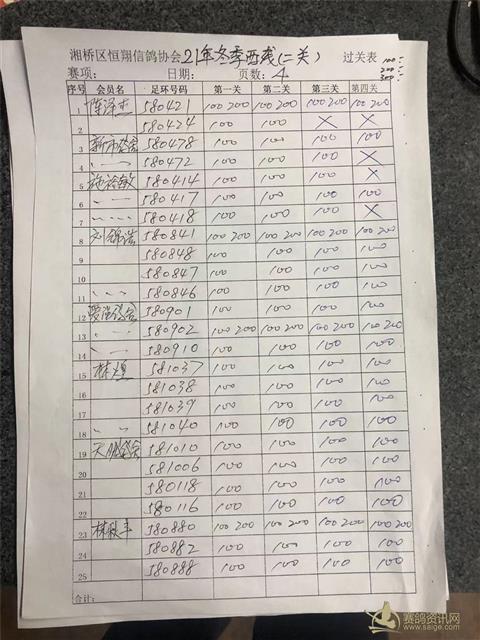 湘桥区恒翔信鸽协会21年冬季西线(二关) 过关表 100
赛项: 日期: 页数: 4 200
300
序号 会员名 足环号码 第一关 第二关 第三关 第四关
1 陈泽杰 580421 100 200 100 200 100 200 100 200
2 580424 100 100 X X
3 580478 100 100 100 100
4 580472 100 100 100 X
5 施裕敏 580414 100 100 100 X
6 580417 100 100 100 100
7 580418 100 100 100 X
8 刘锦浩 580841 100 200 100 200 100 200 100 200
9 580848 100 100 100 100
10 580847 100 100 100
11 580846 100 100 100 100
12 580901 100 100 100 100
13 580902 100 200 100 200 100 200 100 200
14 580910 100 100 100 100
15 林煌 581037 100 100 100 100
16 581038 100 100 100 100
17 581039 100 100 100 100
18 581040 100 100 100 100
19 天鹏鸽舍 581010 100 100 100 100
20 581006 100 100 100 100
21 580118 100 100 100 100
22 580116 100 100 100 100
23 580880 100 200 100 200 100 200 100 200
24 580882 100 100 100 100
25 580888 100 100 100 100
合计:
赛鸽资讯网
www.saige.com